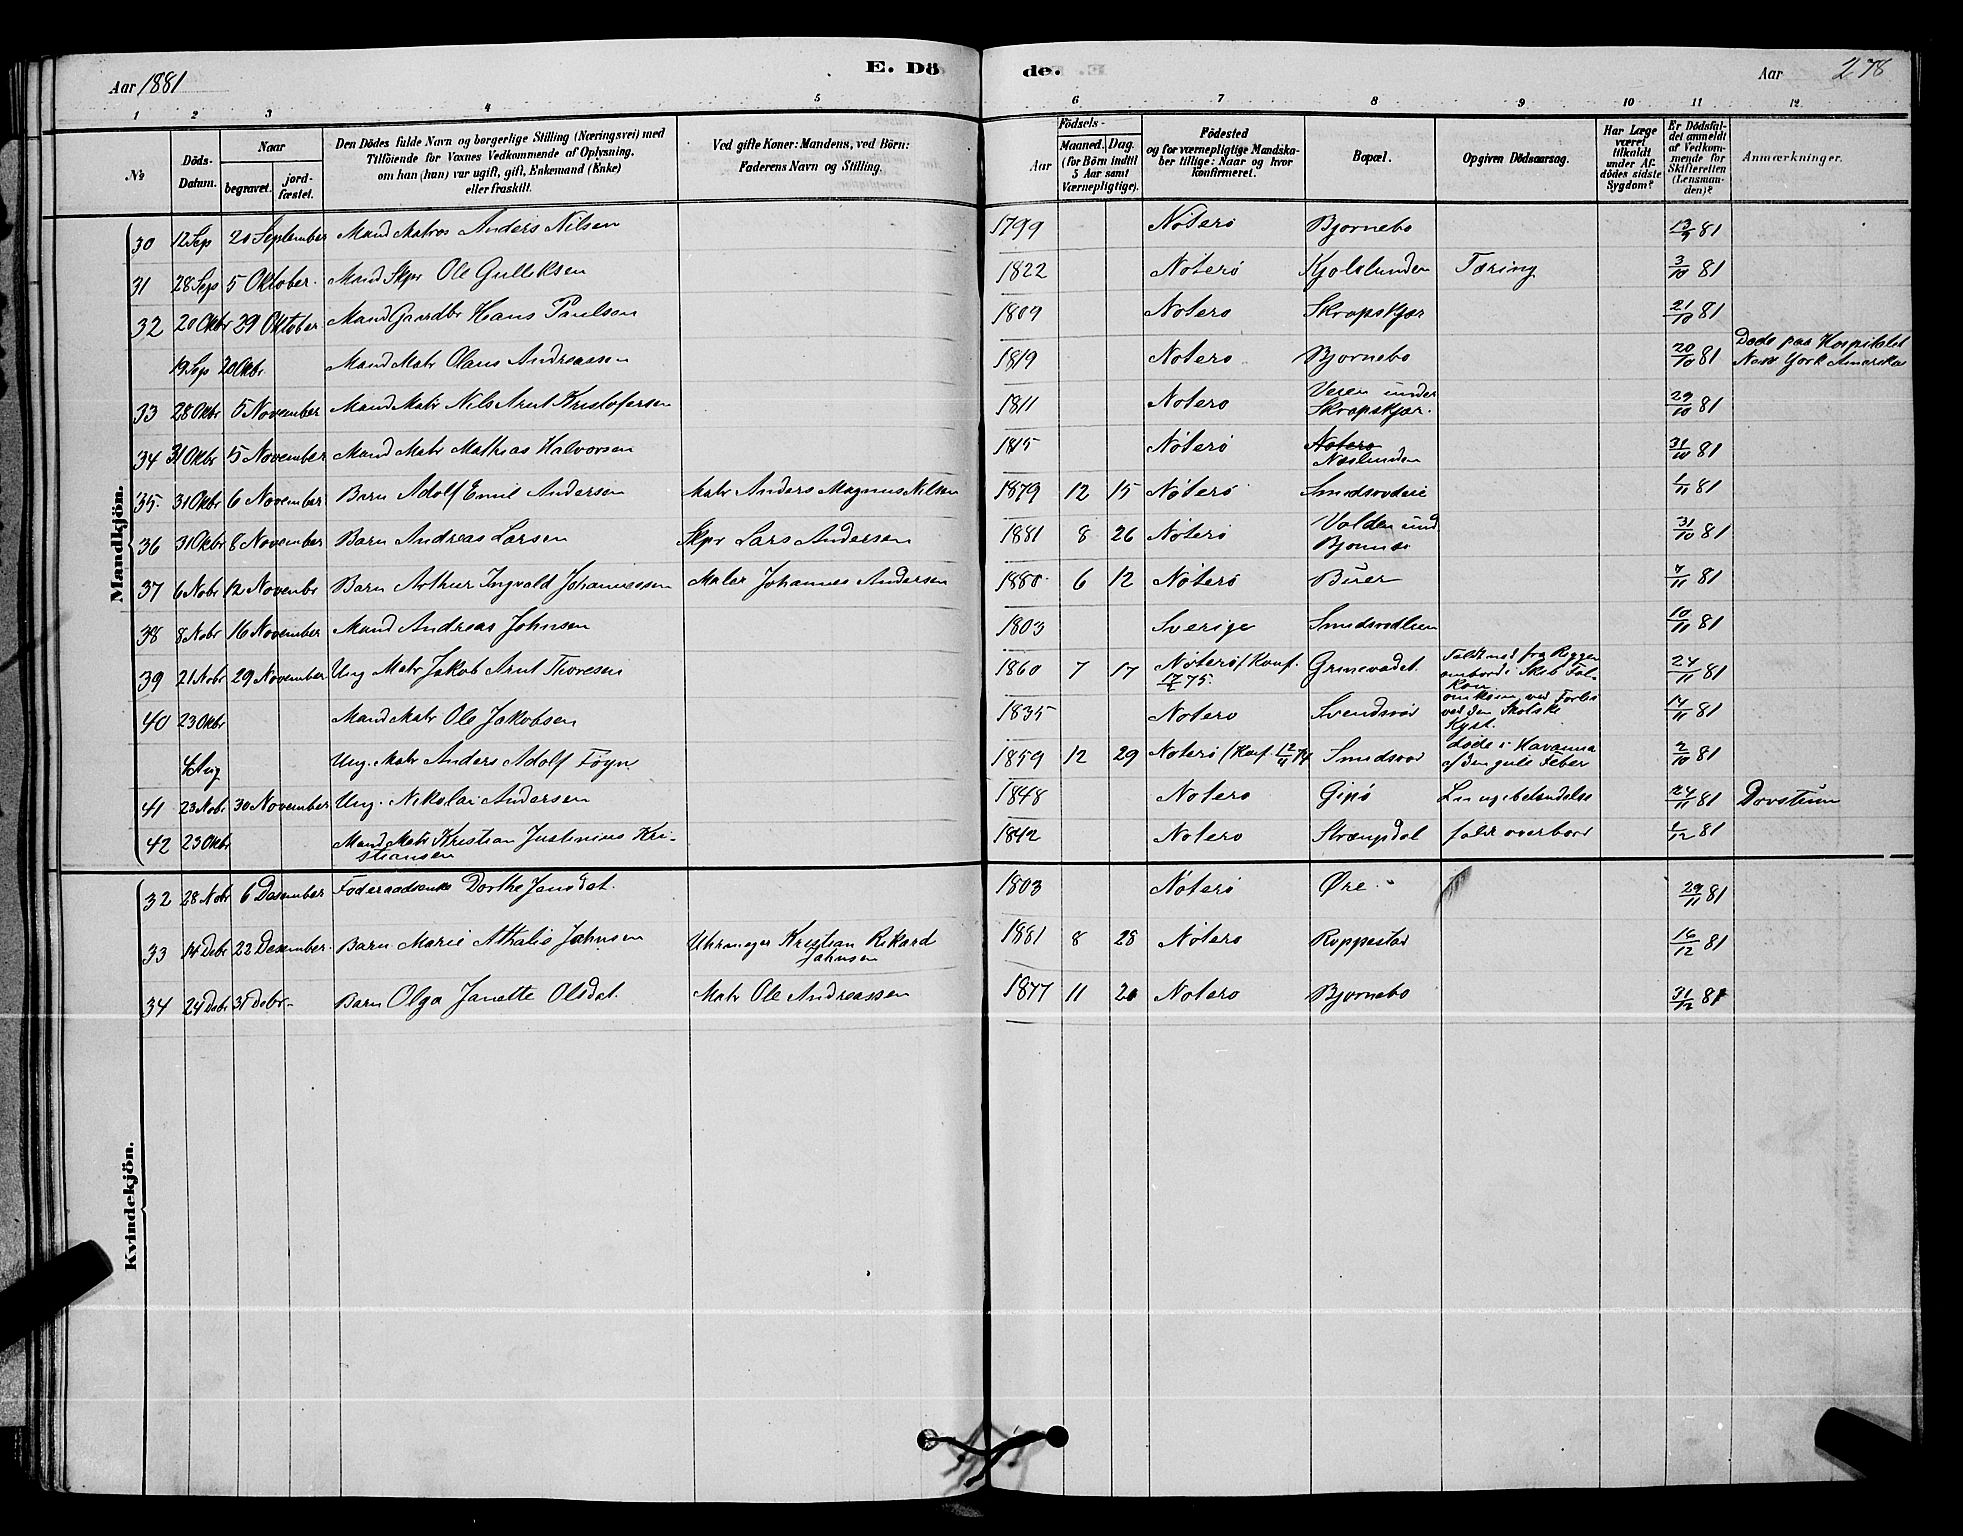 Aar 1881
E. Dö
de.
Aar
278
1 2 3 4 5
6 7 8 9 10 11 12
No
Döds-Datum.
Naar
begravet.
jord-fæstet.
Den Dödes fulde Navn og borgerlige Stilling (Næringsvei) med
Tilföiende for Voxnes Vedkommende af Oplysning,
om han (hun) var ugift, gift, Enkemand (Enke)
eller fraskilt.
Ved gifte Koner: Mandens, ved Börn:
Faderens Navn og Stilling.
Födsels-
Aar
Maaned. Dag.
(for Börn indtil
5 Aar samt
Værnepligtige).
Födested
og for værnepligtige Mandska-
ber tillige: Naar og hvor
konfirmeret.
Bopæl.
Opgiven Dödsaarsag.
Har Læge
været
tilkaldt
under Af-
dödes sidste
Sygdom?
Er Dödsfal-
det anmeldt
af Vedkom-
mende for
Skifteretten
(Lensman-
den)?
Anmærkninger.
Mandkjön.
30 12 Sep 20 September Mand Matros Anders Nilsen 1799 Nöterö Bjornebo 13/9 81
31 28 Sep 5 Oktober. Mand Skpr Ole Gulliksen 1822 Nöterö Kjolelunden Tæring 3/10 81
32 20 Okbr 29 Oktober Mand Gaardbr Hans Paulsen 1809 Notero Skropskjær 21/10 81
19 Sep 20 Okbr. Mand Matr Olaus Andreassen 1819 Notero Bjornebo 20/10 81 Døde paa Hospitalet
New York Amerika
33 28 Okbr 5 November Mand Matr Nils Arnt Kristofersen 1811 Notero Veien under
Skropskjær. 29/10 81
34 31 Okbr 5 November Mand Matr Mathias Halvorsen 1815 Nöterö Notero
Næslunden 31/10 81
35. 31 Okbr 6 November Barn Adolf Emil Andersen Matr Anders Magnus Nilsen 1879 12 15 Nöterö 1/11 81
36 31 Okbr 8 November Barn Andreas Larsen Skpr Lars Andersen 1881 8 26 Nöterö Volden und
31/10 81
37 6 Nobr 12 Novembr Barn Arthur Ingvald Johannessen Maler Johannes Andersen 1880 6 12 Nöterö Buer 7/11 81
38 8 Nobr 16 November Mand Andreas Johnsen 1803 Sverige 10/11 81
39 21 Nobr 29 November Ung Matr Jakob Arnt Thoresen 1860 7 17 Nöterö (Konf. 75. Grimestadet. Faldt ned fra Riggen
ombord i Skib Fal-
ken 24/11 81
40 23 Okbr Mand Matr Ole Jakobsen 1835 Notero Svendsrød omkom ved Forlis
ved den Skotske
Kyst. 14/11 81
4 Aug Ung. Matr Anders Adolf Föyn 1859 12 29 Noterö (Konf. Smedsrød døde i Havanna
af den gule Feber 2/10 81
41 23 Nobr 30 November Ung. Nikolai Andersen 1848 Notero Gipö 24/11 81
42 23 Okbr Mand Matr Kristian Justinius Kri-
stiansen 1842 Notero Strængsdal faldt overbord 1/12 81
Kvindekjön.
32 28 Nobr 6 Desember Föderaadsenke Dorthe Jensdat. 1803 Nöterö Øre 29/11 81
33 14 Debr 22 Desember. Barn Marie Athalie Jahnsen Uhrmager Kristian Rikard
Jahnsen 1881 8 28 Nöterö Roppestad 16/12 81
34 24 Debr 31 Debr Barn Olga Janette Olsdat. Matr Ole Andreassen 1877 11 20 Notero Bjornebo 31/12 81